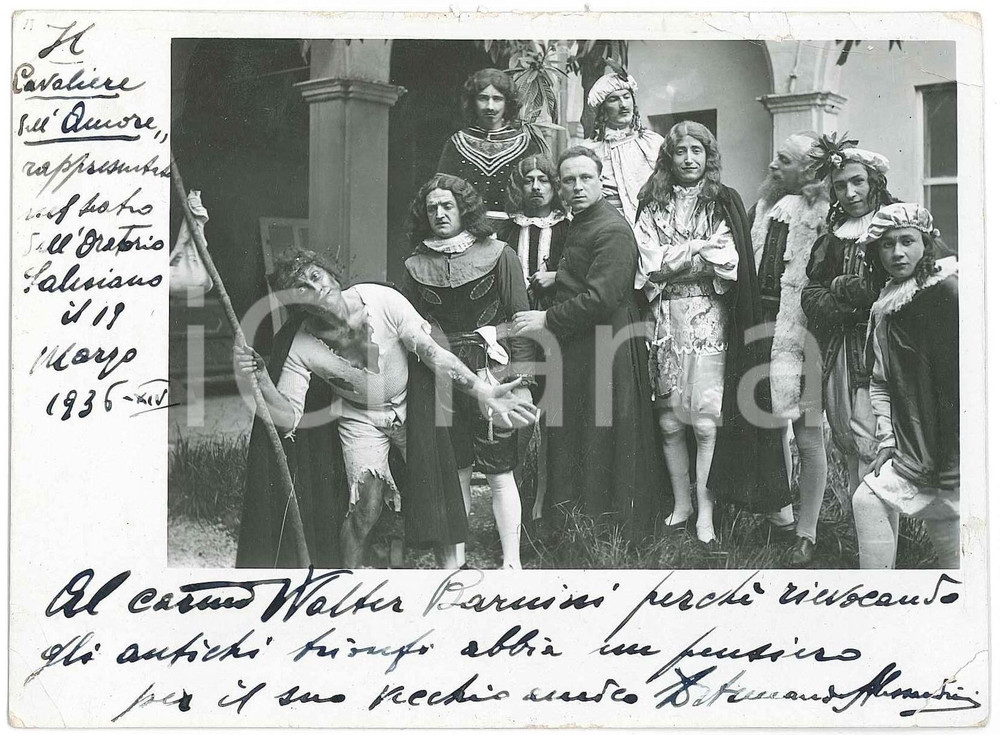 Il
Cavaliere
dell'Amore„
rappresentato
nel teatro
dell'Oratorio
Salesiano
il 19
Marzo
1936-XIV
Al carmo Walter Barnini perchè rievocando
gli antichi trionfi abbia un pensiero
per il suo vecchio amico
iCharta